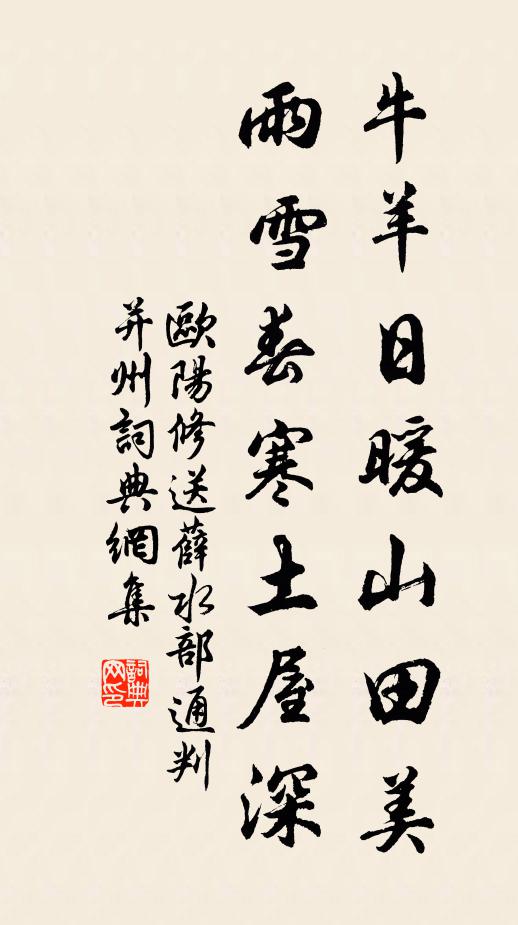 牛羊日暖山田美
雨雪春寒土屋深
歐陽修送薛水部通判
并州詞典網集
詞典网印